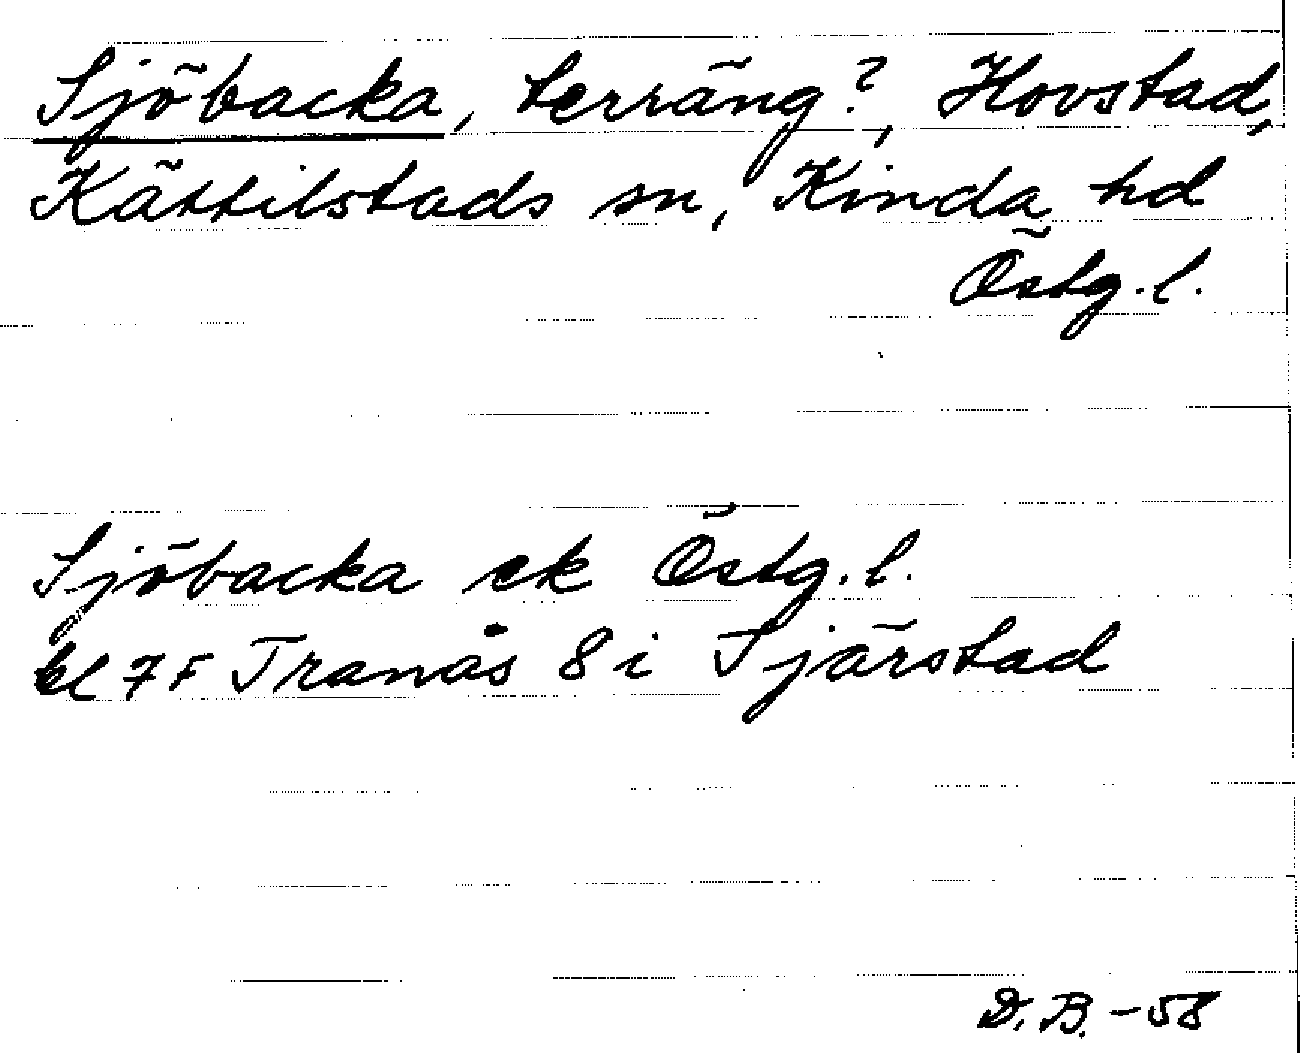 Sjöbacka, terräng?, Hovstad,
Kättilstads sn, Kinda hd
Östg.l.
Sjöbacka ek Östg.l.
bl 7F Tranås 8 i Tjärstad
D.B. -58